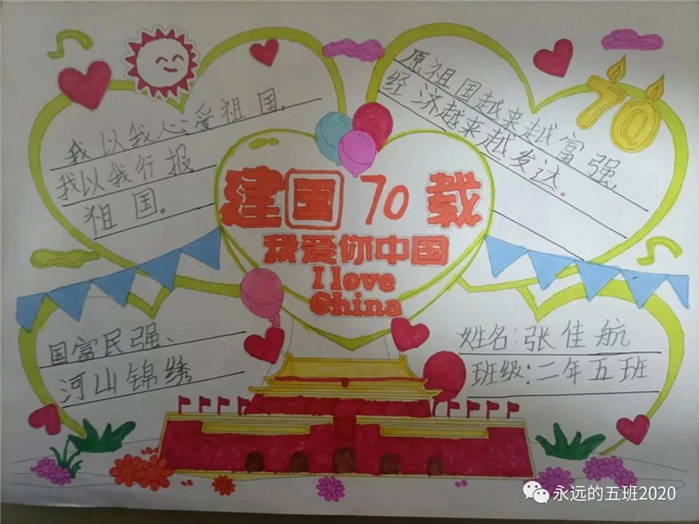 我以我心爱祖国,
我以我行报
祖国。
原祖国越来越富强
经济越来越发达。
70
建国70载
我爱你中国
I love
China
国富民强、
河山锦绣
姓名:张佳航
班级:二年五班
永远的五班2020